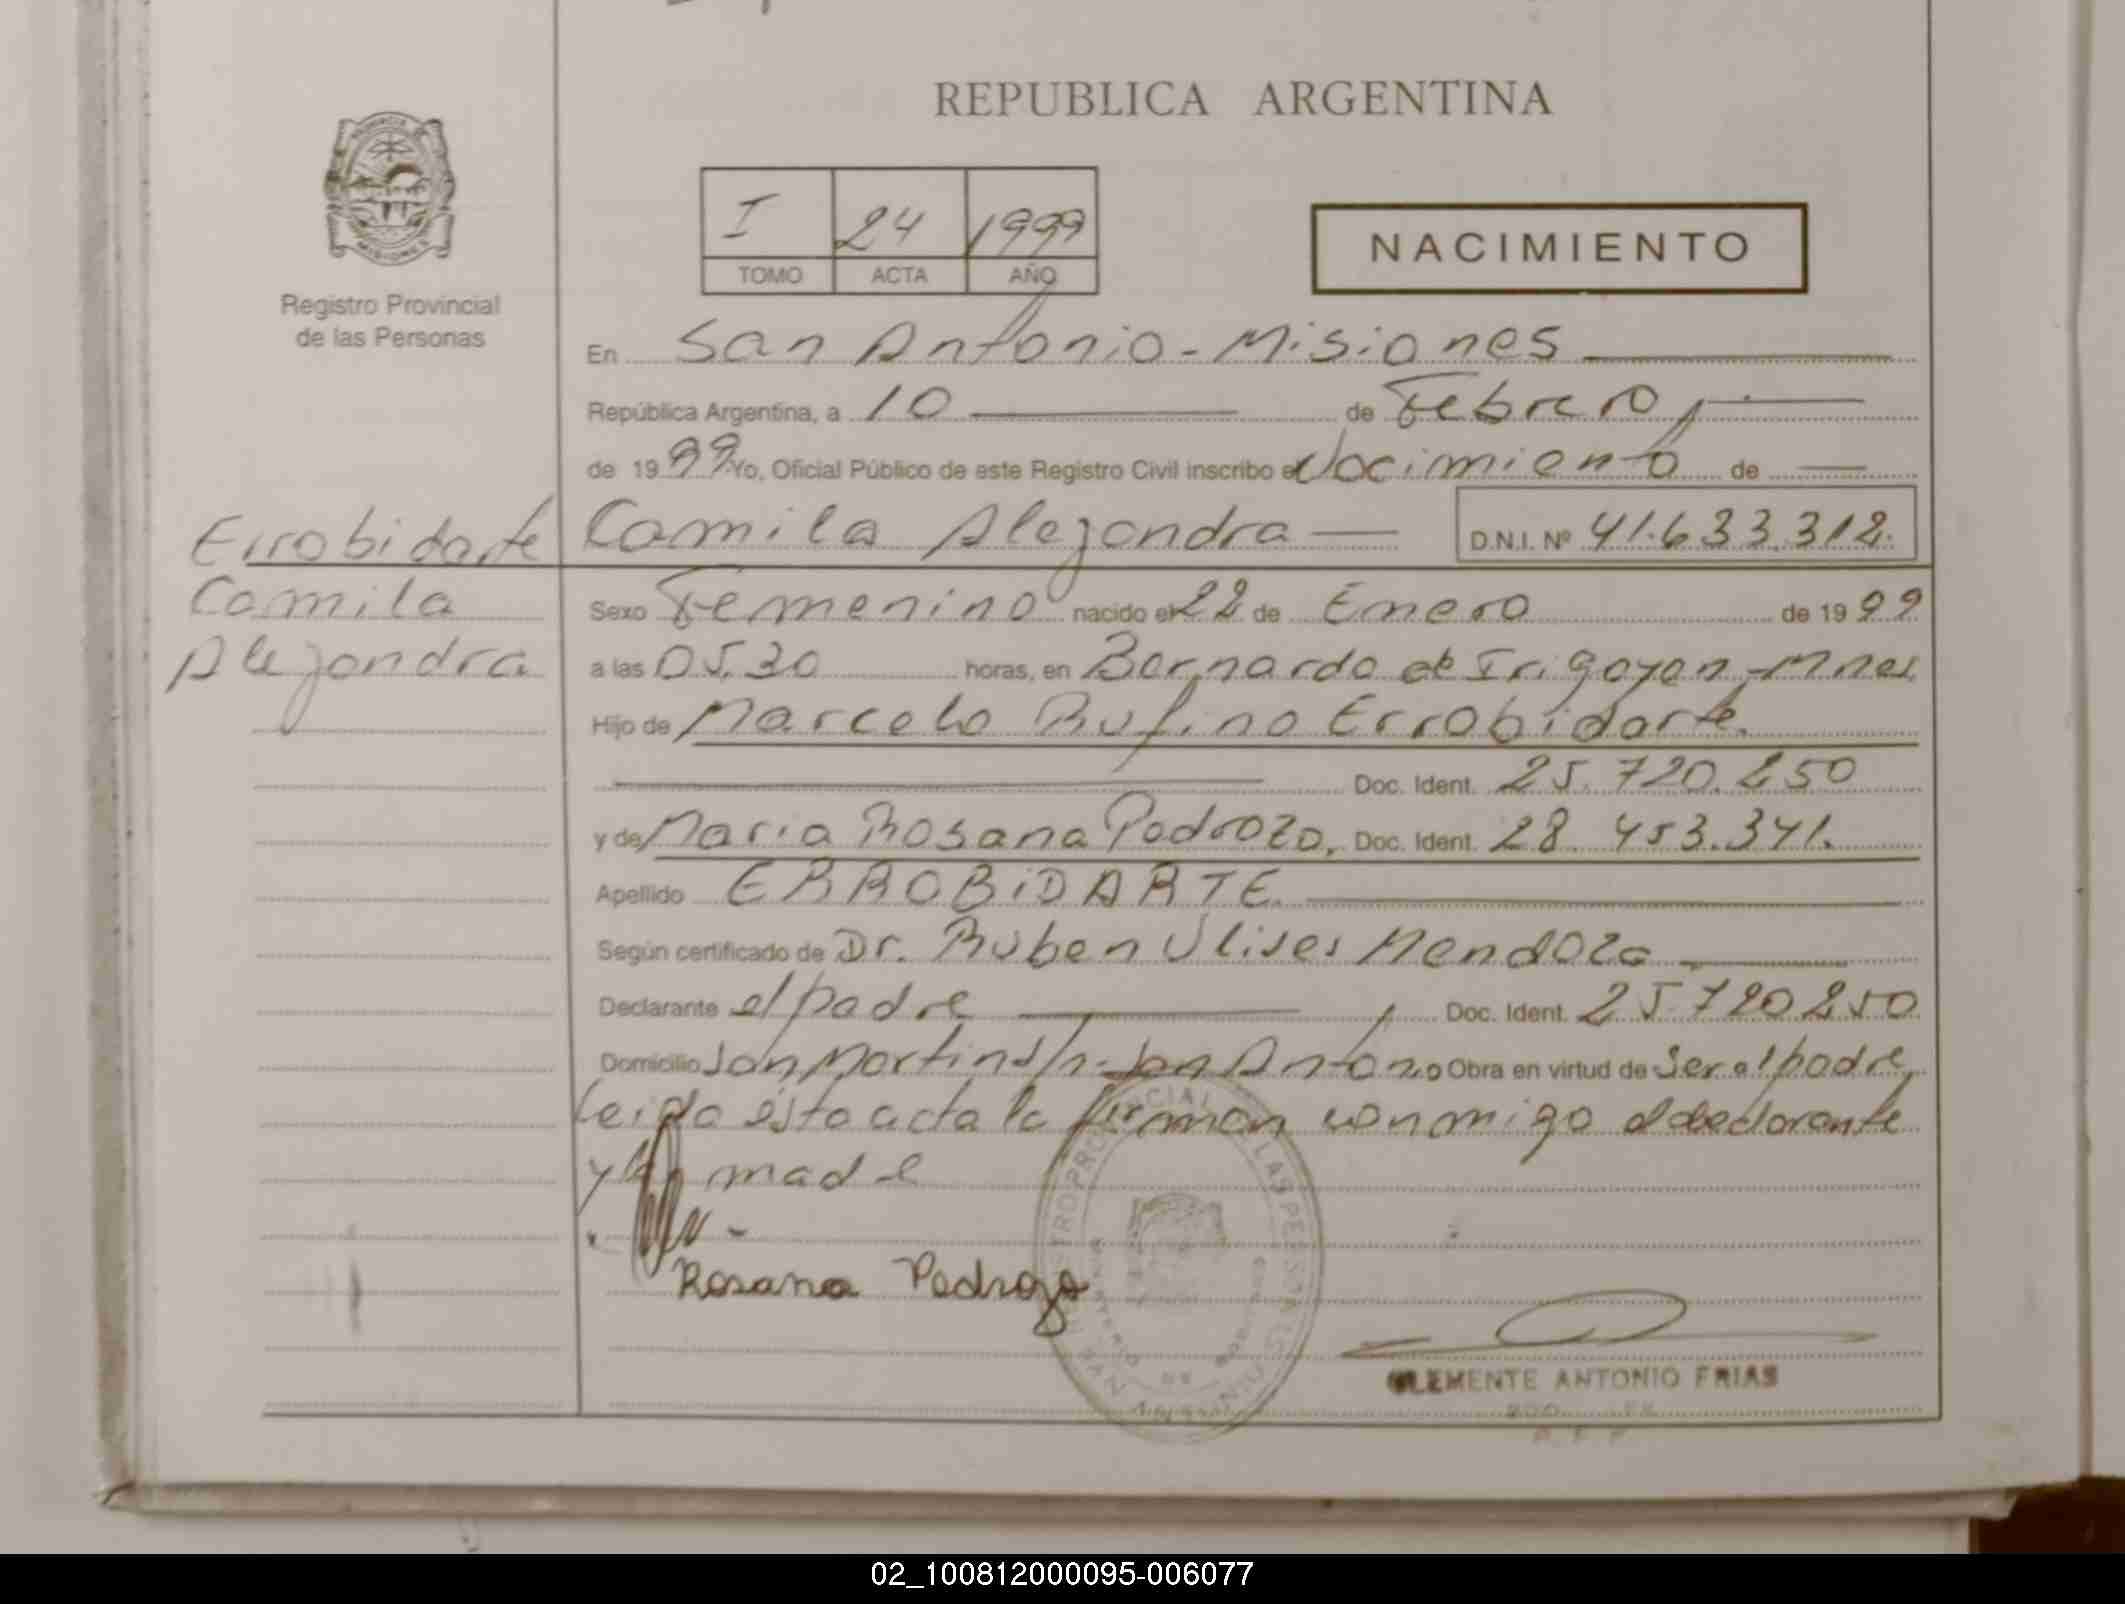 REPUBLICA ARGENTINA
PROVINCIA DE
MISIONES
Registro Provincial
de las Personas
I 24 1999
TOMO ACTA AÑO
NACIMIENTO
En San Antonio - Misiones
República Argentina, a 10 de Febrero
de 1999 Yo, Oficial Público de este Registro Civil inscribo el Nacimiento de
Errobidarte
Camila
Alejandra
Camila Alejandra D.N.I. Nº 41.633.312.
Sexo Femenino nacido el 22 de Enero de 1999
a las 05.30 horas, en Bernardo de Irigoyen - Mnes.
Hijo de Marcelo Rufino Errobidarte.
Doc. Ident. 25.720.250
y de Maria Rosana Pedrozo, Doc. Ident. 28.453.341.
Apellido ERROBIDARTE.
Según certificado de Dr. Ruben Ulises Mendoza
Declarante el padre Doc. Ident. 25.720250
Domicilio San Martin s/n - San Antonio Obra en virtud de ser el padre
leida ésta acta la firman conmigo el declarante
y la madre
Rosana Pedrozo
CLEMENTE ANTONIO FRIAS
02_100812000095-006077